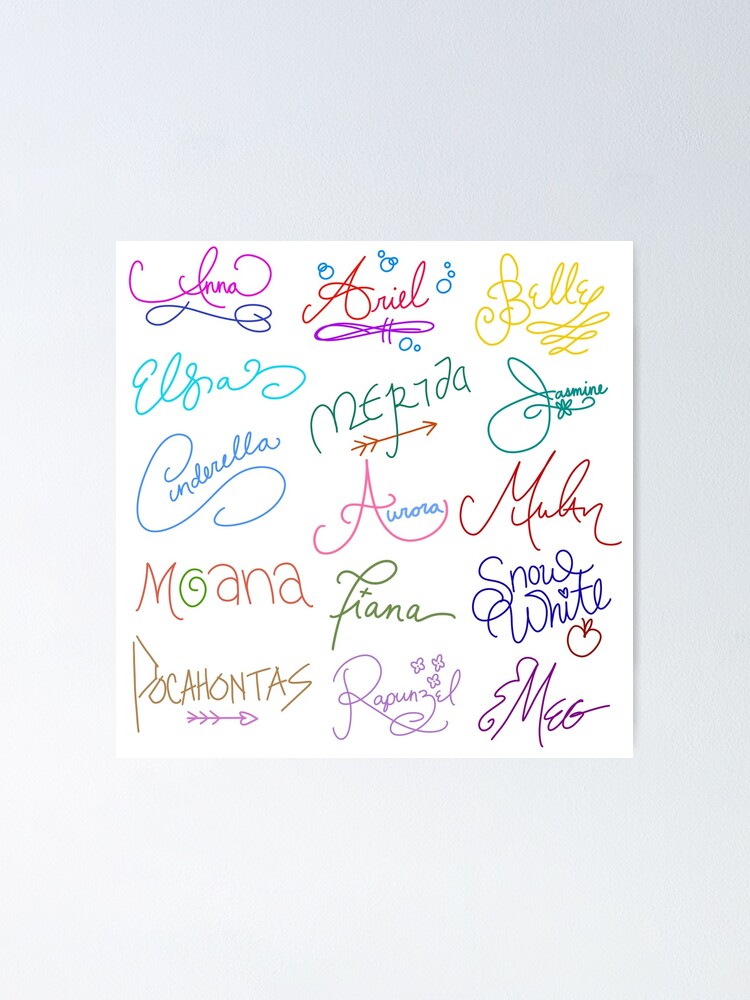 Anna
Ariel
Belle
Elsa
Merida
Jasmine
Cinderella
Aurora
Mulan
Moana
Tiana
Snow
White
Pocahontas
Rapunzel
Meg